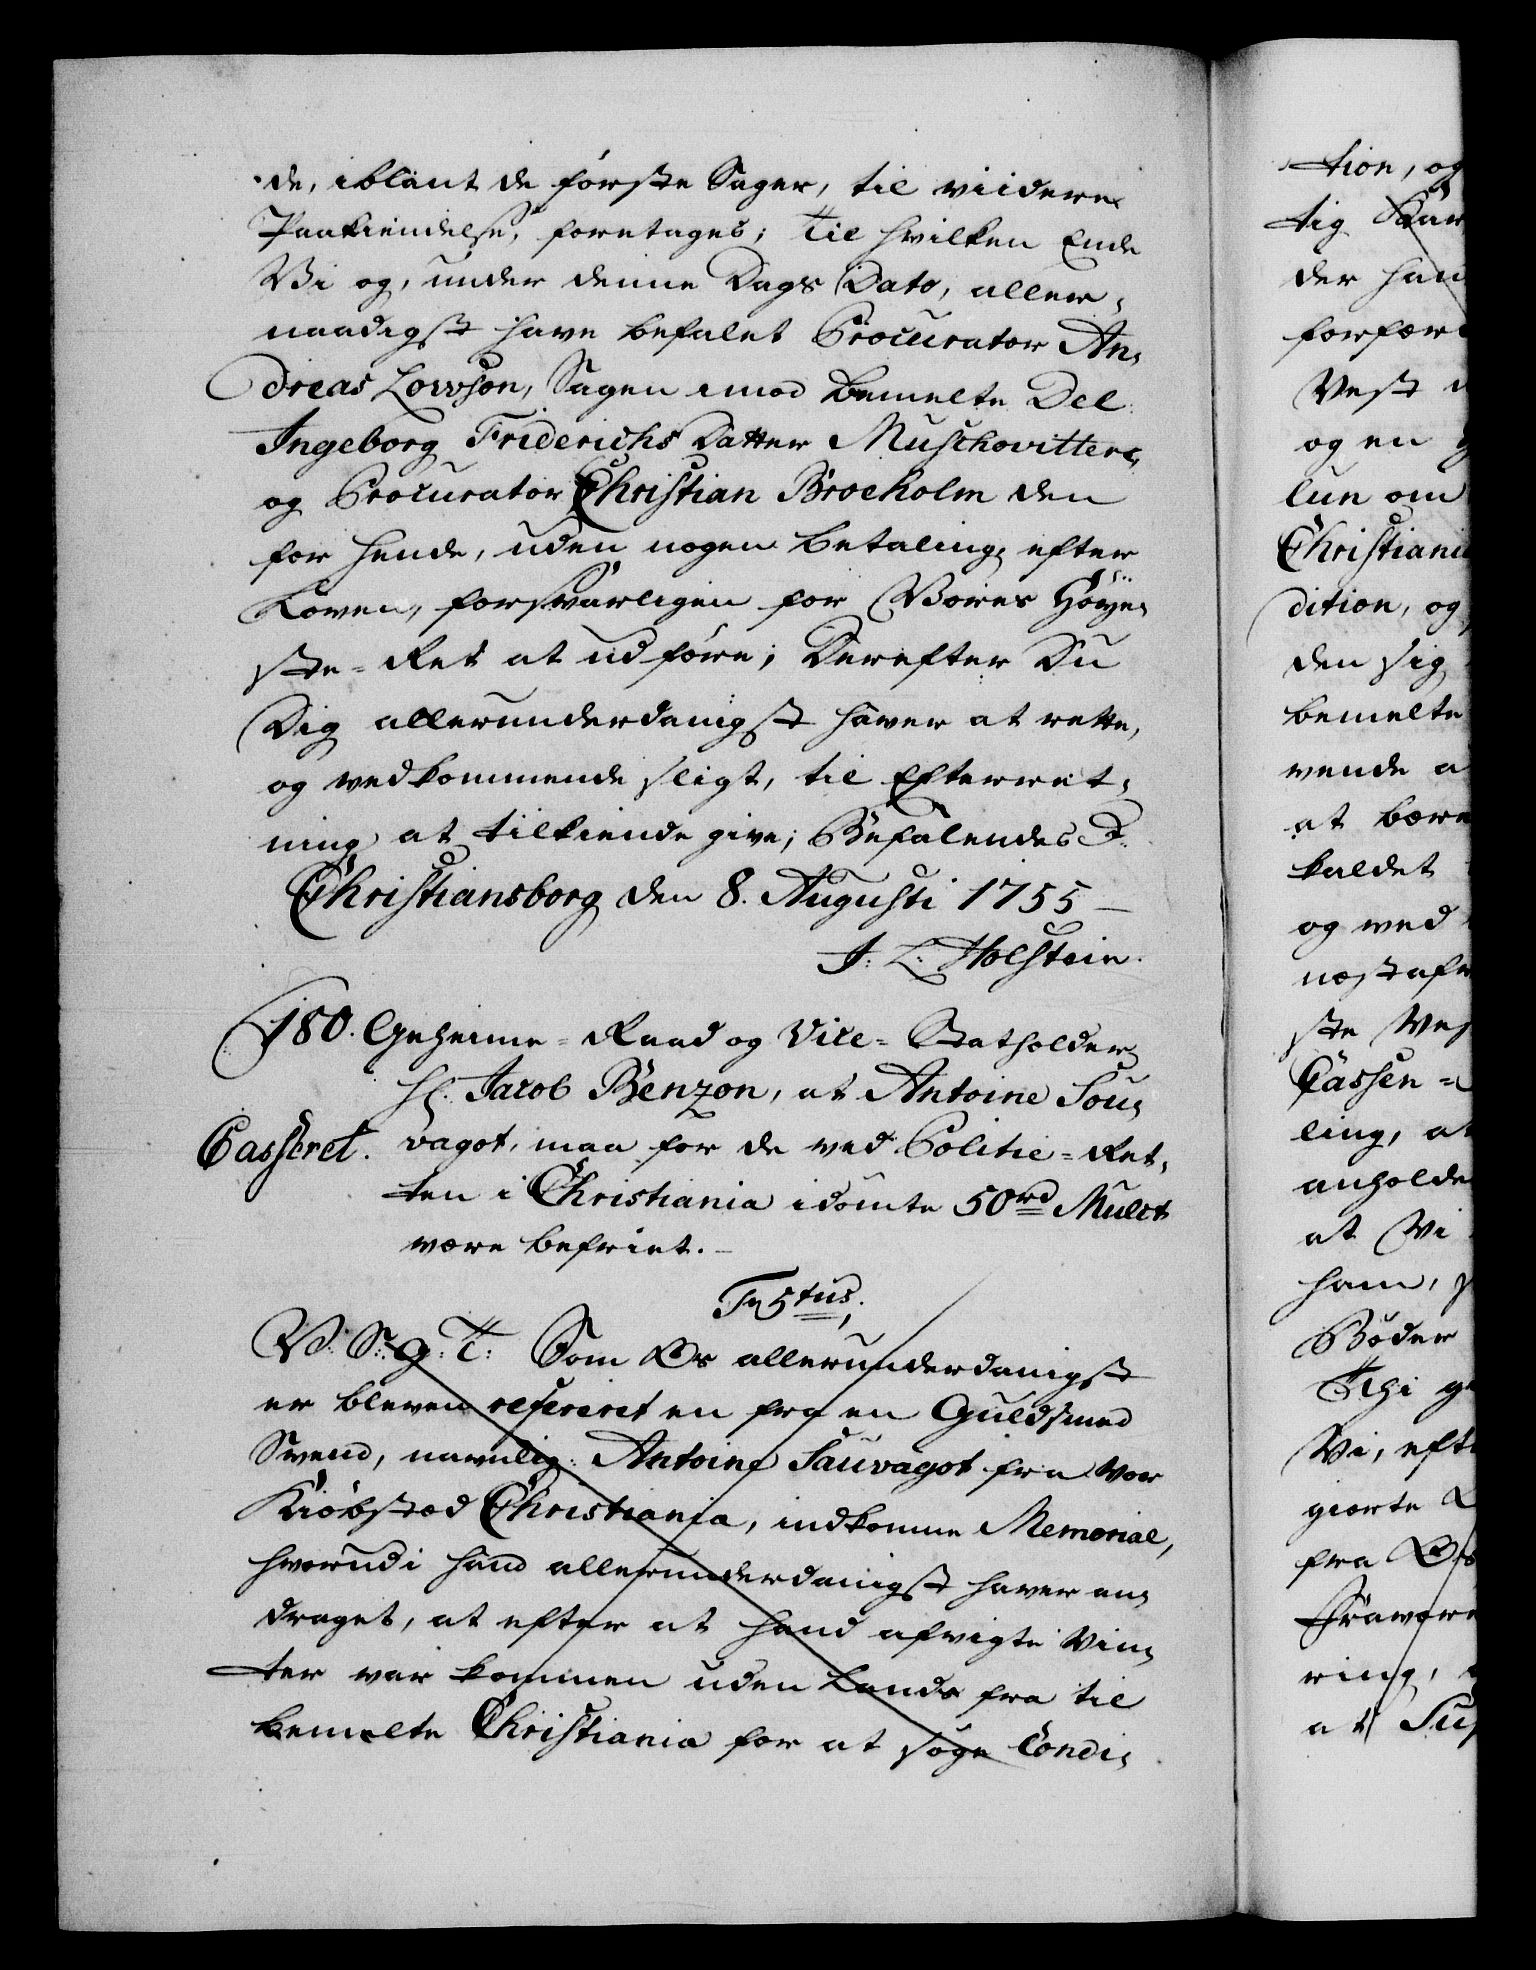 de, iblant de første Sager, til viidere
Paakiendelse, foretages; Til hvilken Ende
Vi og, under denne Dags Dato, aller,
naadigst have befalet Procurator An,
dreas Lowson, Sagen imod bemelte Del:
Ingeborg Friderichs Datter Muschovitters,
og Procurator Christian Brocholm den
for hende, uden nogen betaling, efter
Loven, forsvarligen for Vores Høye,
ste-Ret at udføre; Derefter Du
Dig allerunderdanigst haver at rette,
og vedkommende sligt, til Efterret,
ning at tilkiende give; Befalendes D.
Christiansborg den 8. Augusti 1755
J: L: Holstein.
180. Geheime-Raad og Vice-Statholder
Hr. Jacob Benzon, at Antoine Sou,
Casseret.
vagot, maa for de ved Politie-Ret,
ten i Christiania idømte 50 rd Mulct
være befriet.
Fr 5tus.
V: S: g: T: Som Os allerunderdanigst
er bleven refereret en fra en Guldsmed
Svend, navnlig: Antoine Sauvagot fra Vor
Kiøbsted Christiania, indkomne Memorial,
hvorudi hand allerunderdanigst haver an,
draget, at efter at hand afvigte Vin,
ter var kommen uden Lands fra til
bemelte Christiania for at søge Condi,
tion, og
tig
der han
forfær
Vest
og en
lun om
Christiani
dition, og
den sig
bemelte
vende a
at bære
kaldet
og med
næstafv
ste Ves
Cassen
ling, at
anholde
at Vi
ham,
Bøder
Thi g
Vi, eft
giorte
fra Os
ring,
at Sup